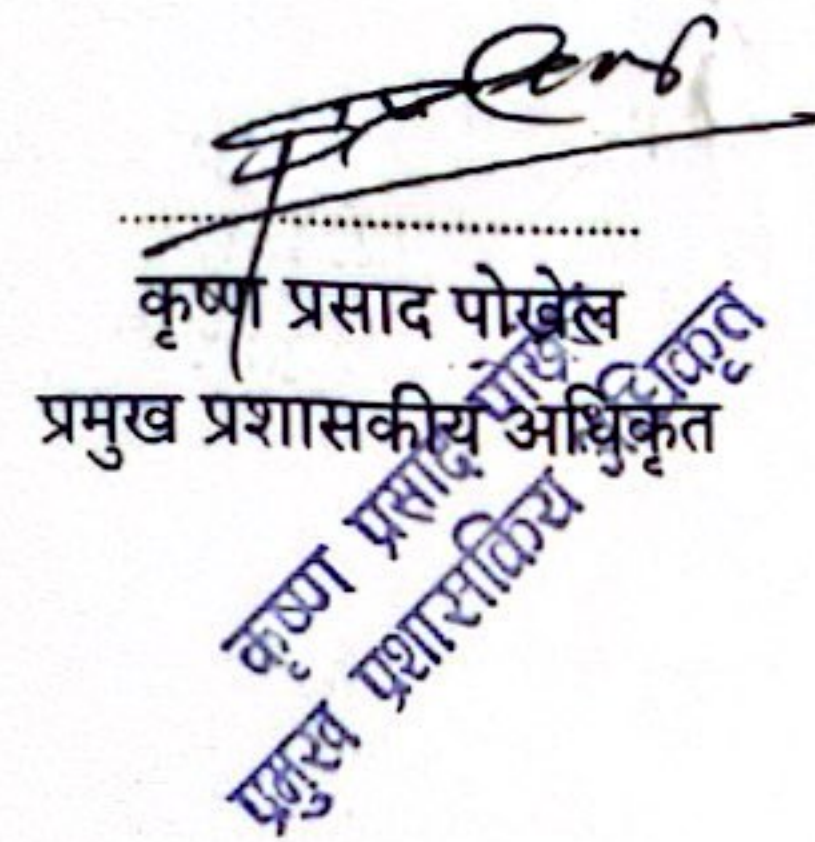 कृष्ण प्रसाद पोखेल
प्रमुख प्रशासकीय अधिकृत
कृष्ण प्रसाद
प्रमुख प्रशासकिय अधिकृत